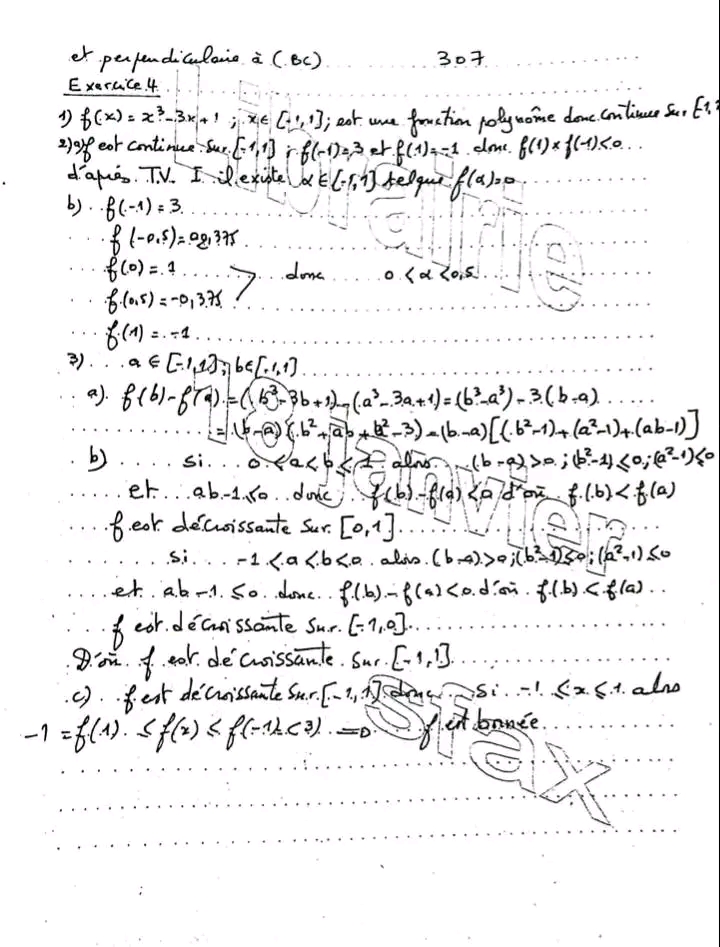 et perpendiculaire à (BC) 307
Exercice 4
1) f(x) = x³-3x+1 ; x∈ [-1,1]; est une fonction polynôme donc continue sur [-1,
2) a) f est continue sur [-1,1] ; f(-1)=3 et f(1)=-1 donc f(1)×f(-1)<0
d'après T.V.I il existe α∈[-1,1] tel que f(α)=0
b) f(-1)=3
f(-0,5)=
f(0)=1
donc 0<α<0,5
f(0,5)=-0,375
f(1)=-1
3) a∈[-1,1]; b∈[-1,1]
a) f(b)-f(a)=(b³-3b+1)-(a³-3a+1)=(b³-a³)-3(b-a)
=(b-a)(b²+ab+a²-3)=(b-a)[(b²-1)+(a²-1)+(ab-1)]
b) si 0<a<b<1 alors (b-a)>0;(b²-1)≤0;(a²-1)≤0
et ab-1≤0 donc f(b)-f(a)<0 d'où f(b)<f(a)
f est décroissante sur [0,1]
si -1<a<b<0 alors (b-a)>0;(b²-1)≤0;(a²-1)≤0
et ab-1≤0 donc f(b)-f(a)<0 d'où f(b)<f(a)
f est décroissante sur [-1,0]
D'où f est décroissante sur [-1,1]
c) f est décroissante sur [-1,1] donc si -1≤x≤1 alors
-1=f(1)≤f(x)≤f(-1)<3) ⇒ f est bornée
Librairie
18 janvier
sfax